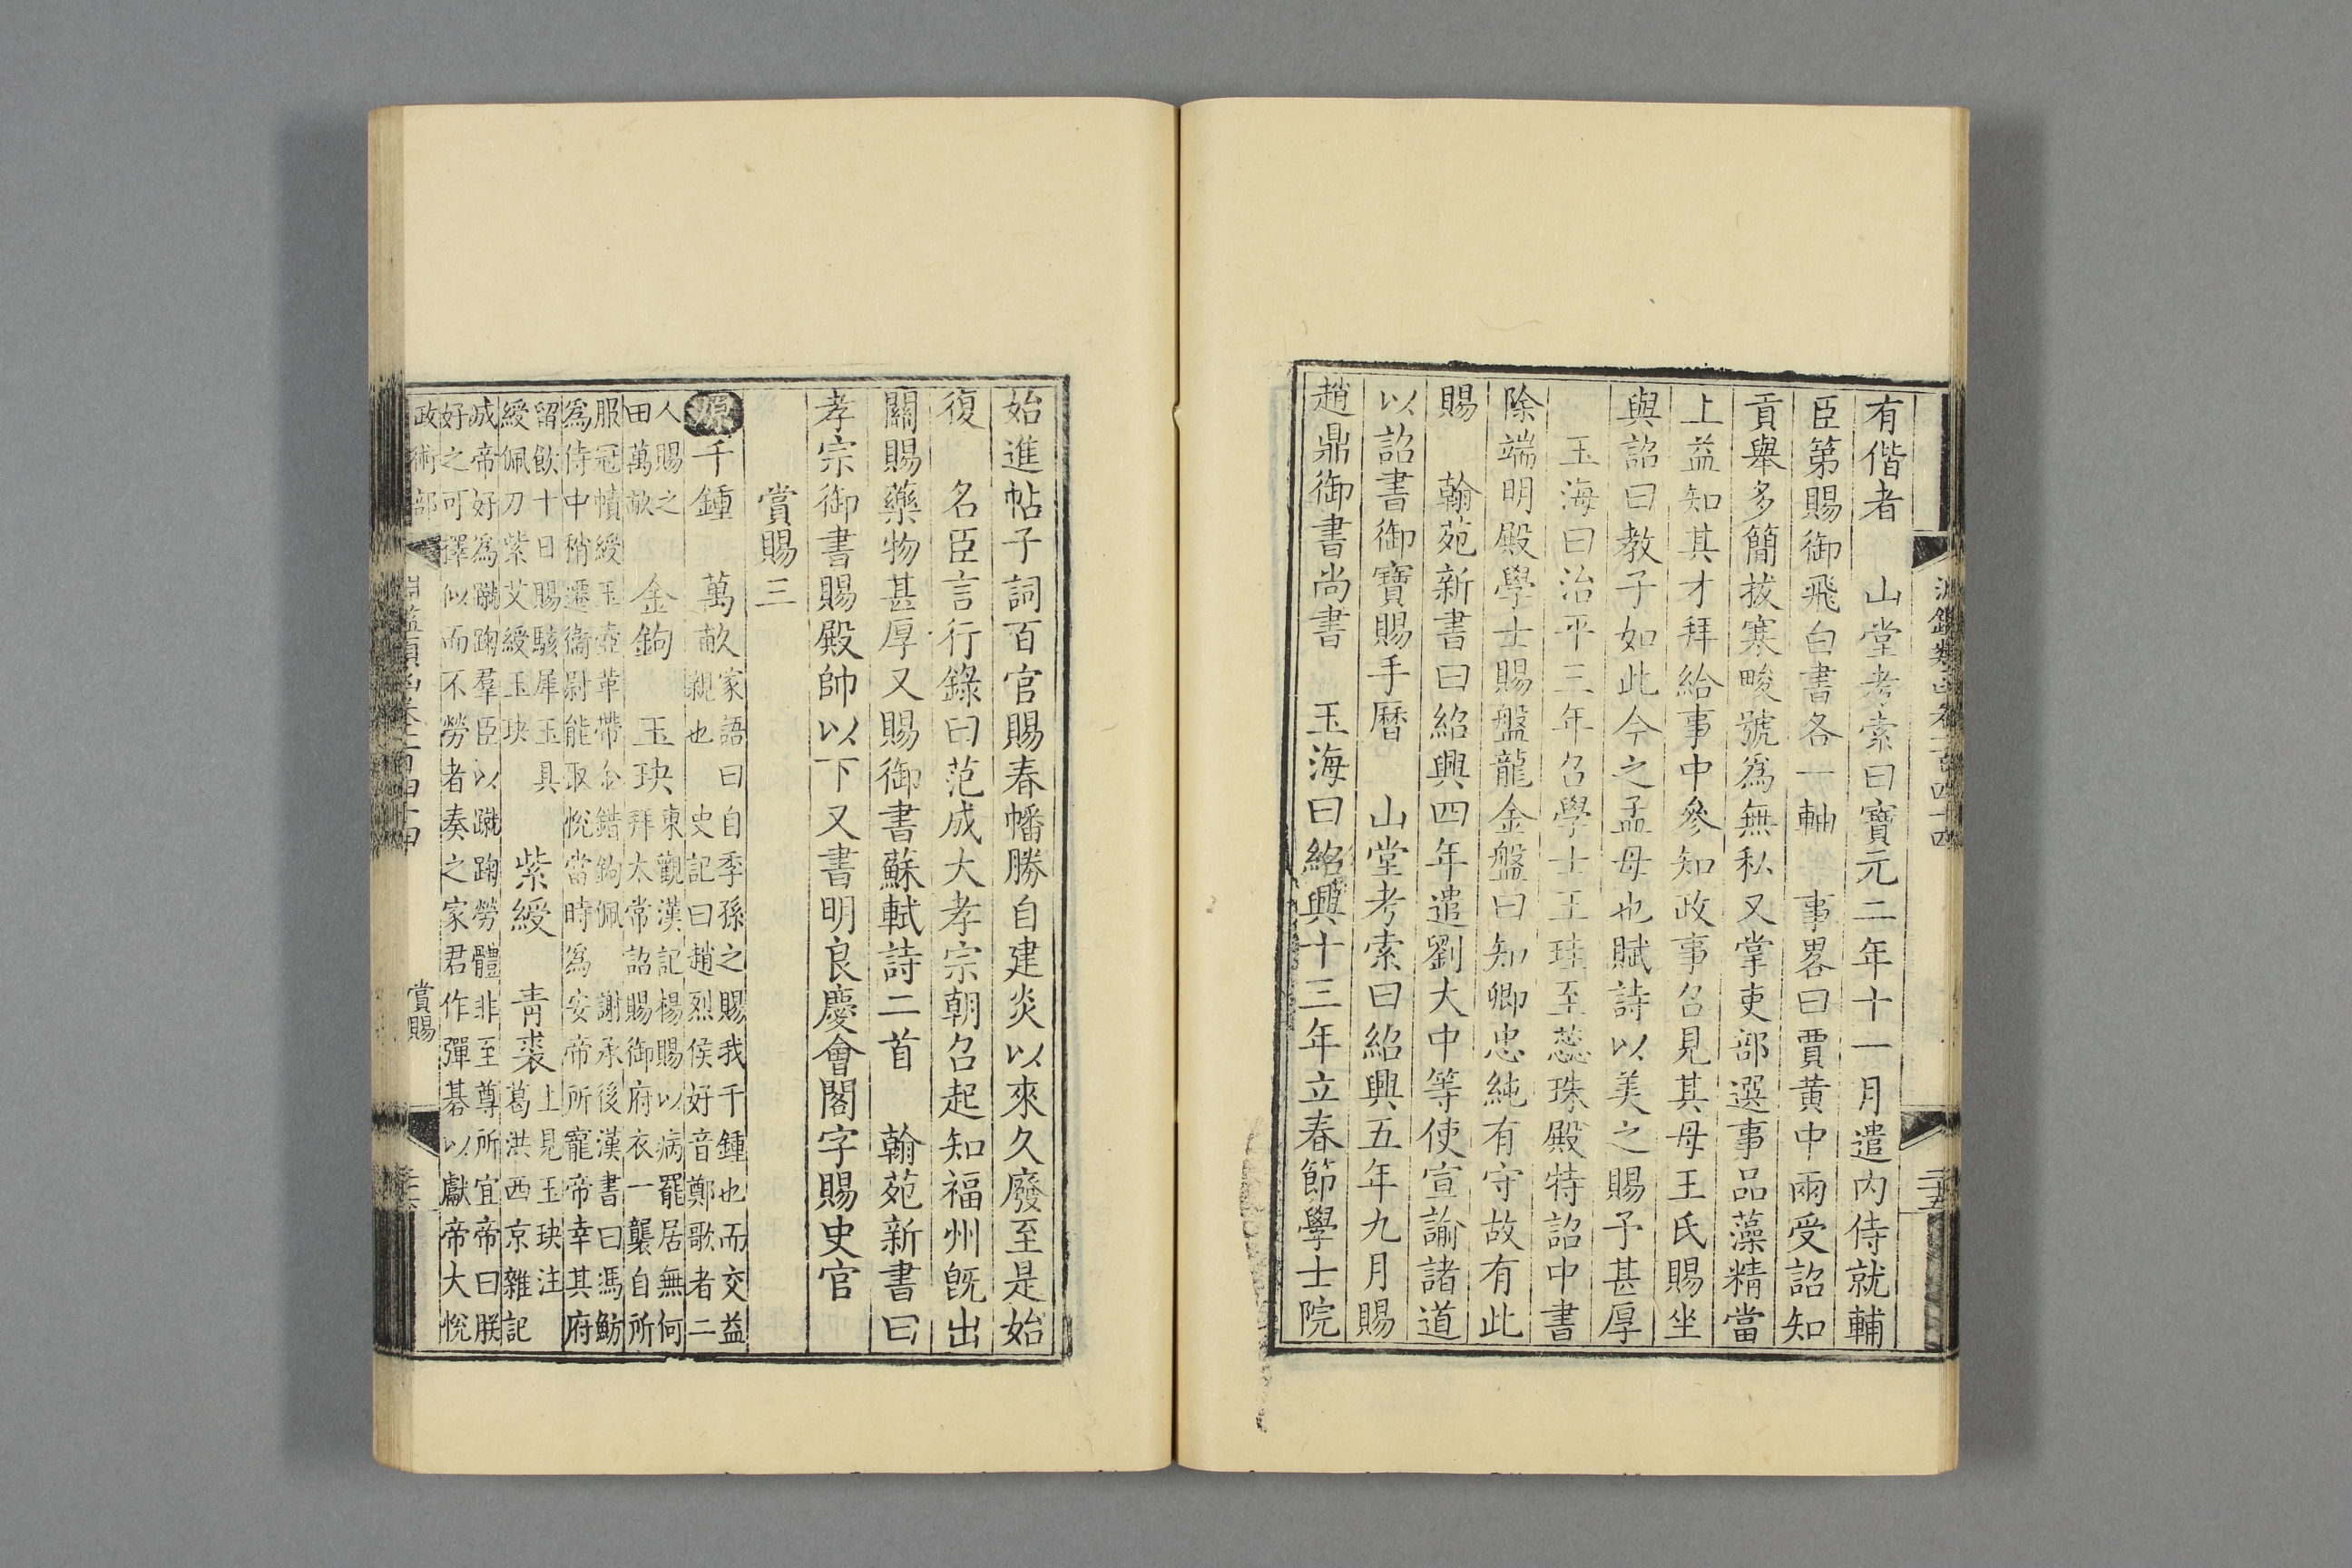 淵鑑類函卷一百四十四
二五
有偕者　山堂考索曰寶元二年十一月遣内侍就輔
臣第賜御飛白書各一軸　事畧曰賈黄中兩受詔知
貢舉多簡拔寒畯號爲無私又掌吏部選事品藻精當
上益知其才拜給事中參知政事召見其母王氏賜坐
與詔曰教子如此今之孟母也賦詩以美之賜予甚厚
玉海曰治平三年召學士王珪至蕊珠殿特詔中書
除端明殿學士賜盤龍金盤曰知卿忠純有守故有此
賜　翰苑新書曰紹興四年遣劉大中等使宣諭諸道
以詔書御寶賜手曆　山堂考索曰紹興五年九月賜
趙鼎御書尚書　玉海曰紹興十三年立春節學士院
始進帖子詞百官賜春幡勝自建炎以來久廢至是始
復　名臣言行錄曰范成大孝宗朝召起知福州旣出
關賜藥物甚厚又賜御書蘇軾詩二首　翰苑新書曰
孝宗御書賜殿帥以下又書明良慶會閣字賜史官
賞賜三
源千鍾　萬畝家語曰自季孫之賜我千鍾也而交益
親也　史記曰趙烈侯好音鄭歌者二
人賜之
田萬畝　金鉤　玉玦東觀漢記楊賜以病罷居無何
拜太常詔賜御府衣一襲自所
服冠幘綬玉壺革帶金錯鉤佩　謝承後漢書曰馮魴
爲侍中稍遷衞尉能取悅當時爲安帝所寵帝幸其府
留飲十日賜駭犀玉具
綬佩刀紫艾綬玉玦　紫綬　靑裘上見玉玦注
葛洪西京雜記
成帝好爲蹴踘羣臣以蹴踘勞體非至尊所宜帝曰朕
好之可擇似而不勞者奏之家君作彈碁以獻帝大悅
政術部　淵鑑類函卷二百四十四　賞賜